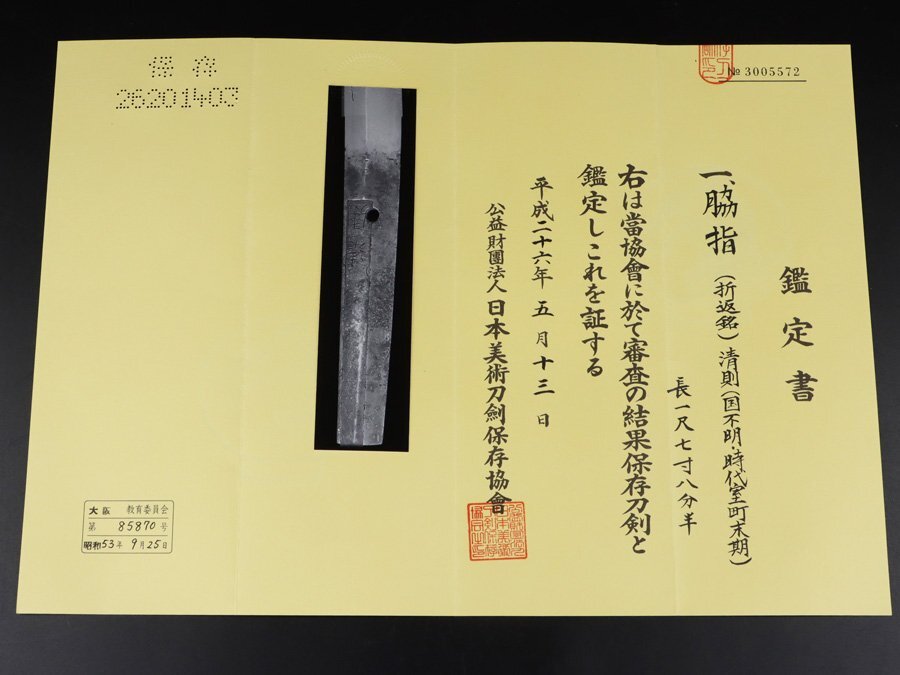 鑑定書
№ 3005572
一、脇指 (折返銘) 清則 (国不明・時代室町末期)
長一尺七寸八分半
右は當協會に於て審査の結果保存刀剣と
鑑定しこれを証する
平成二十六年 五月 十三日
公益財團法人 日本美術刀劍保存協會
保存
26201403
大阪 教育委員会
第 85870 号
昭和53年 9月25日